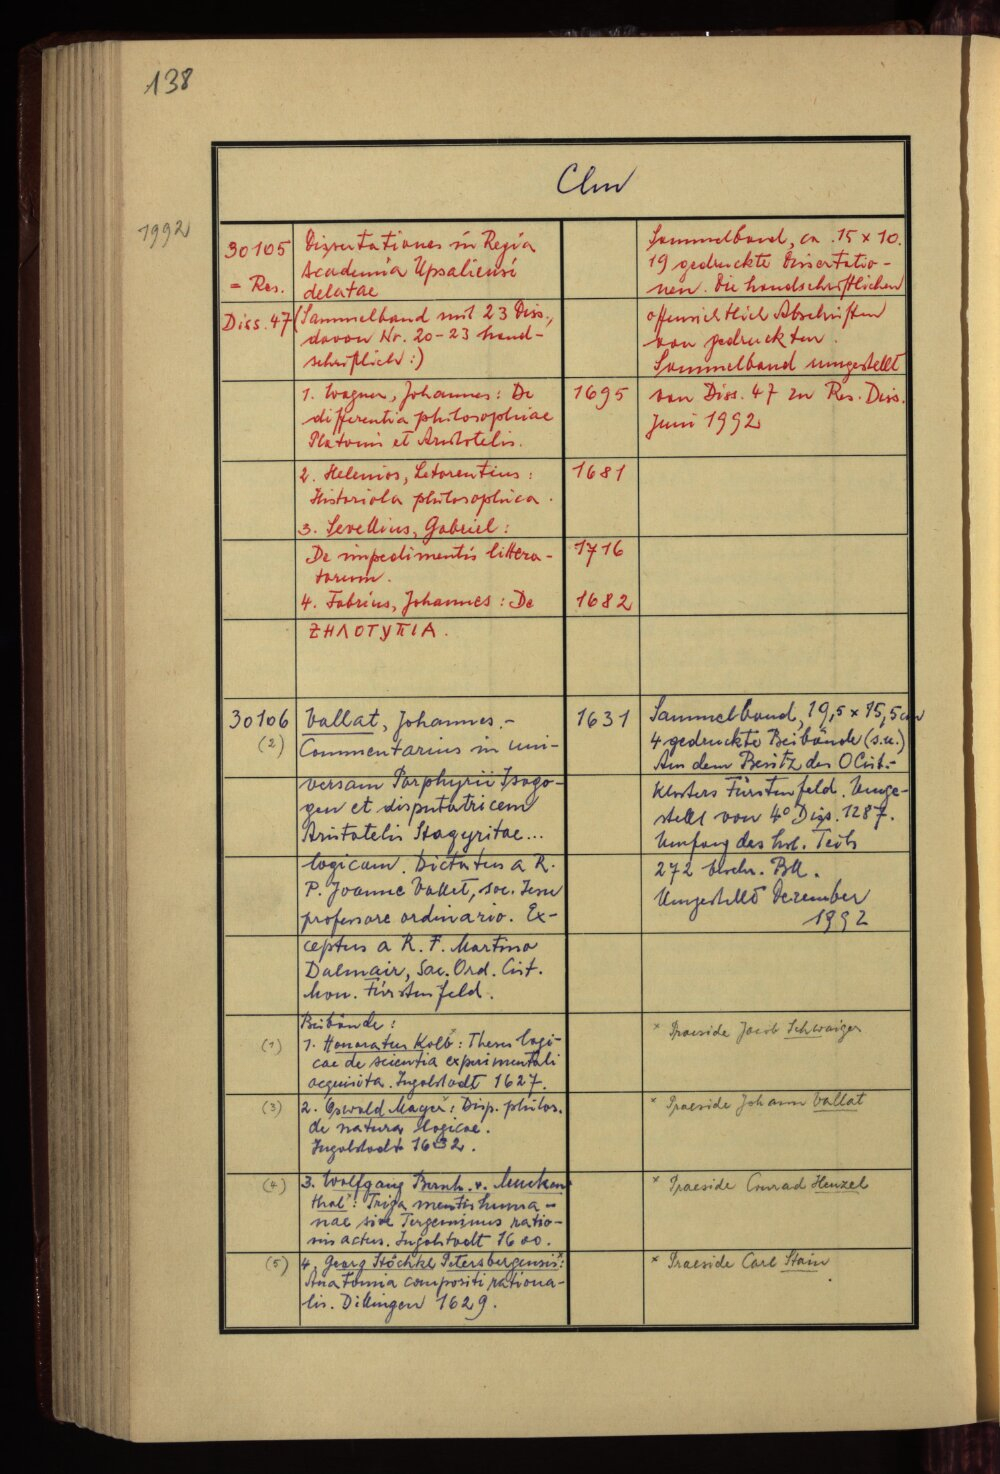 138
Clm
1992
30105
= Res.
Diss. 47
Dissertationes in Regia
Academia Upsaliensi
delatae
(Sammelband mit 23 Diss.,
davon Nr. 20-23 hand-
schriftlich:)
1. Wagner, Johannes: De
differentia philosophiae
Platonis et Aristotelis.
1695
2. Helenius, Letorentius:
Historiola philosophica.
1681
3. Sevellius, Gabriel:
De impedimentis littera-
torum.
1716
4. Fabrius, Johannes: De
ΖΗΛΟΤΥΠΙΑ.
1682
Sammelband, ca. 15 x 10.
19 gedruckte Dissertatio-
nen. Die handschriftlichen
offensichtlich Abschriften
von gedruckten.
Sammelband umgestellt
von Diss. 47 zu Res. Diss.
Juni 1992
30106
(2)
Vallat, Johannes.-
Commentarius in uni-
versam Porphyrii Isago-
gen et disputatricem
Aristotelis Stagyritae...
logicam. Dictatus a R.
P. Joanne Vallet, soc. Jesu
professore ordinario. Ex-
ceptus a R. F. Martino
Dalmair, Sac. Ord. Cist.
Mon. Fürstenfeld.
1631
Sammelband, 19,5 x 15,5 cm
4 gedruckte Beibände (s.u.)
Aus dem Besitz des OCist.-
Klosters Fürstenfeld. Umge-
stellt von 4° Diss. 1287.
Umfang des hsl. Teils
272 beschr. Bll.
Umgestellt Dezember
1992
Beibände:
(1)
1. Honoratus Kolb*: Theses logi-
cae de scientia experimentali
acquisita. Ingolstadt 1627.
* Praeside Jacob Schwaiger
(3)
2. Oswald Mayer*: Disp. philos.
de natura logicae.
Ingolstadt 1632.
* Praeside Johann Vallat
(4)
3. Wolfgang Bernh. v. Mucken
thal*: Triga mentis huma-
nae sive Tergeminus ratio-
nis actus. Ingolstadt 1600.
* Praeside Conrad Henzel
(5)
4. Georg Stöckhl Petersbergensis*:
Anatomia compositi rationa-
lis. Dillingen 1629.
* Praeside Carl Stain